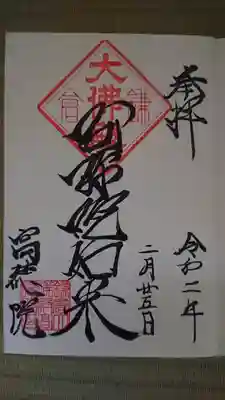 奉拝
令和二年
二月廿五日
大佛
阿弥陀如来
高徳院